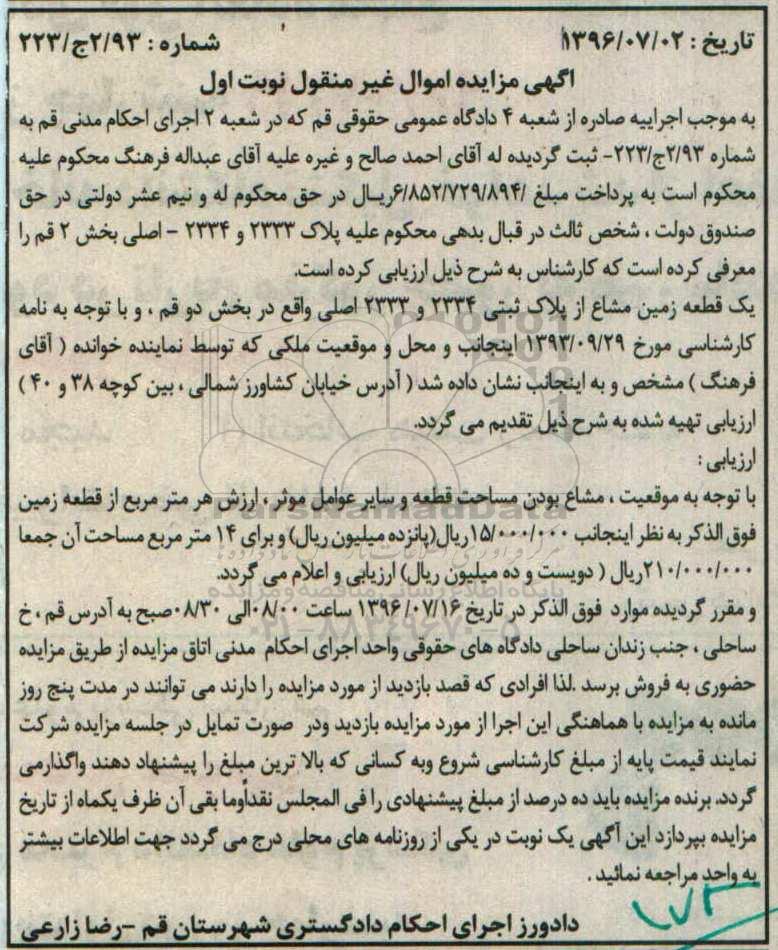 تاریخ : ۱۳۹۶/۰۷/۰۲
شماره : ۲/۹۳ج/۲۲۳
آگهی مزایده اموال غیر منقول نوبت اول
به موجب اجراییه صادره از شعبه ۴ دادگاه عمومی حقوقی قم که در شعبه ۲ اجرای احکام مدنی قم به
شماره ۲/۹۳ج/۲۲۳- ثبت گردیده له آقای احمد صالح و غیره علیه آقای عبداله فرهنگ محکوم علیه
محکوم است به پرداخت مبلغ /۶/۸۵۲/۷۲۹/۸۹۴ریال در حق محکوم له و نیم عشر دولتی در حق
صندوق دولت ، شخص ثالث در قبال بدهی محکوم علیه پلاک ۲۳۳۳ و ۲۳۳۴ - اصلی بخش ۲ قم را
معرفی کرده است که کارشناس به شرح ذیل ارزیابی کرده است.
یک قطعه زمین مشاع از پلاک ثبتی ۲۳۳۴ و ۲۳۳۳ اصلی واقع در بخش دو قم ، و با توجه به نامه
کارشناسی مورخ ۱۳۹۳/۰۹/۲۹ اینجانب و محل و موقعیت ملکی که توسط نماینده خوانده ( آقای
فرهنگ ) مشخص و به اینجانب نشان داده شد ( آدرس خیابان کشاورز شمالی ، بین کوچه ۳۸ و ۴۰ )
ارزیابی تهیه شده به شرح ذیل تقدیم می گردد.
ارزیابی :
با توجه به موقعیت ، مشاع بودن مساحت قطعه و سایر عوامل موثر ، ارزش هر متر مربع از قطعه زمین
فوق الذکر به نظر اینجانب ۱۵/۰۰۰/۰۰۰ریال(پانزده میلیون ریال) و برای ۱۴ متر مربع مساحت آن جمعا
۲۱۰/۰۰۰/۰۰۰ریال ( دویست و ده میلیون ریال) ارزیابی و اعلام می گردد.
و مقرر گردیده موارد فوق الذکر در تاریخ ۱۳۹۶/۰۷/۱۶ ساعت ۰۸/۰۰الی ۰۸/۳۰صبح به آدرس قم ، خ
ساحلی ، جنب زندان ساحلی دادگاه های حقوقی واحد اجرای احکام مدنی اتاق مزایده از طریق مزایده
حضوری به فروش برسد .لذا افرادی که قصد بازدید از مورد مزایده را دارند می توانند در مدت پنج روز
مانده به مزایده با هماهنگی این اجرا از مورد مزایده بازدید ودر صورت تمایل در جلسه مزایده شرکت
نمایند قیمت پایه از مبلغ کارشناسی شروع وبه کسانی که بالا ترین مبلغ را پیشنهاد دهند واگذارمی
گردد. برنده مزایده باید ده درصد از مبلغ پیشنهادی را فی المجلس نقداًوما بقی آن ظرف یکماه از تاریخ
مزایده بپردازد این آگهی یک نوبت در یکی از روزنامه های محلی درج می گردد جهت اطلاعات بیشتر
به واحد مراجعه نمائید .
دادورز اجرای احکام دادگستری شهرستان قم -رضا زارعی
۱۷۳
ParsNamadData
پایگاه اطلاع رسانی مناقصه و مزایده
۰۲۱-۸۸۳۴۹۶۷۰-۵